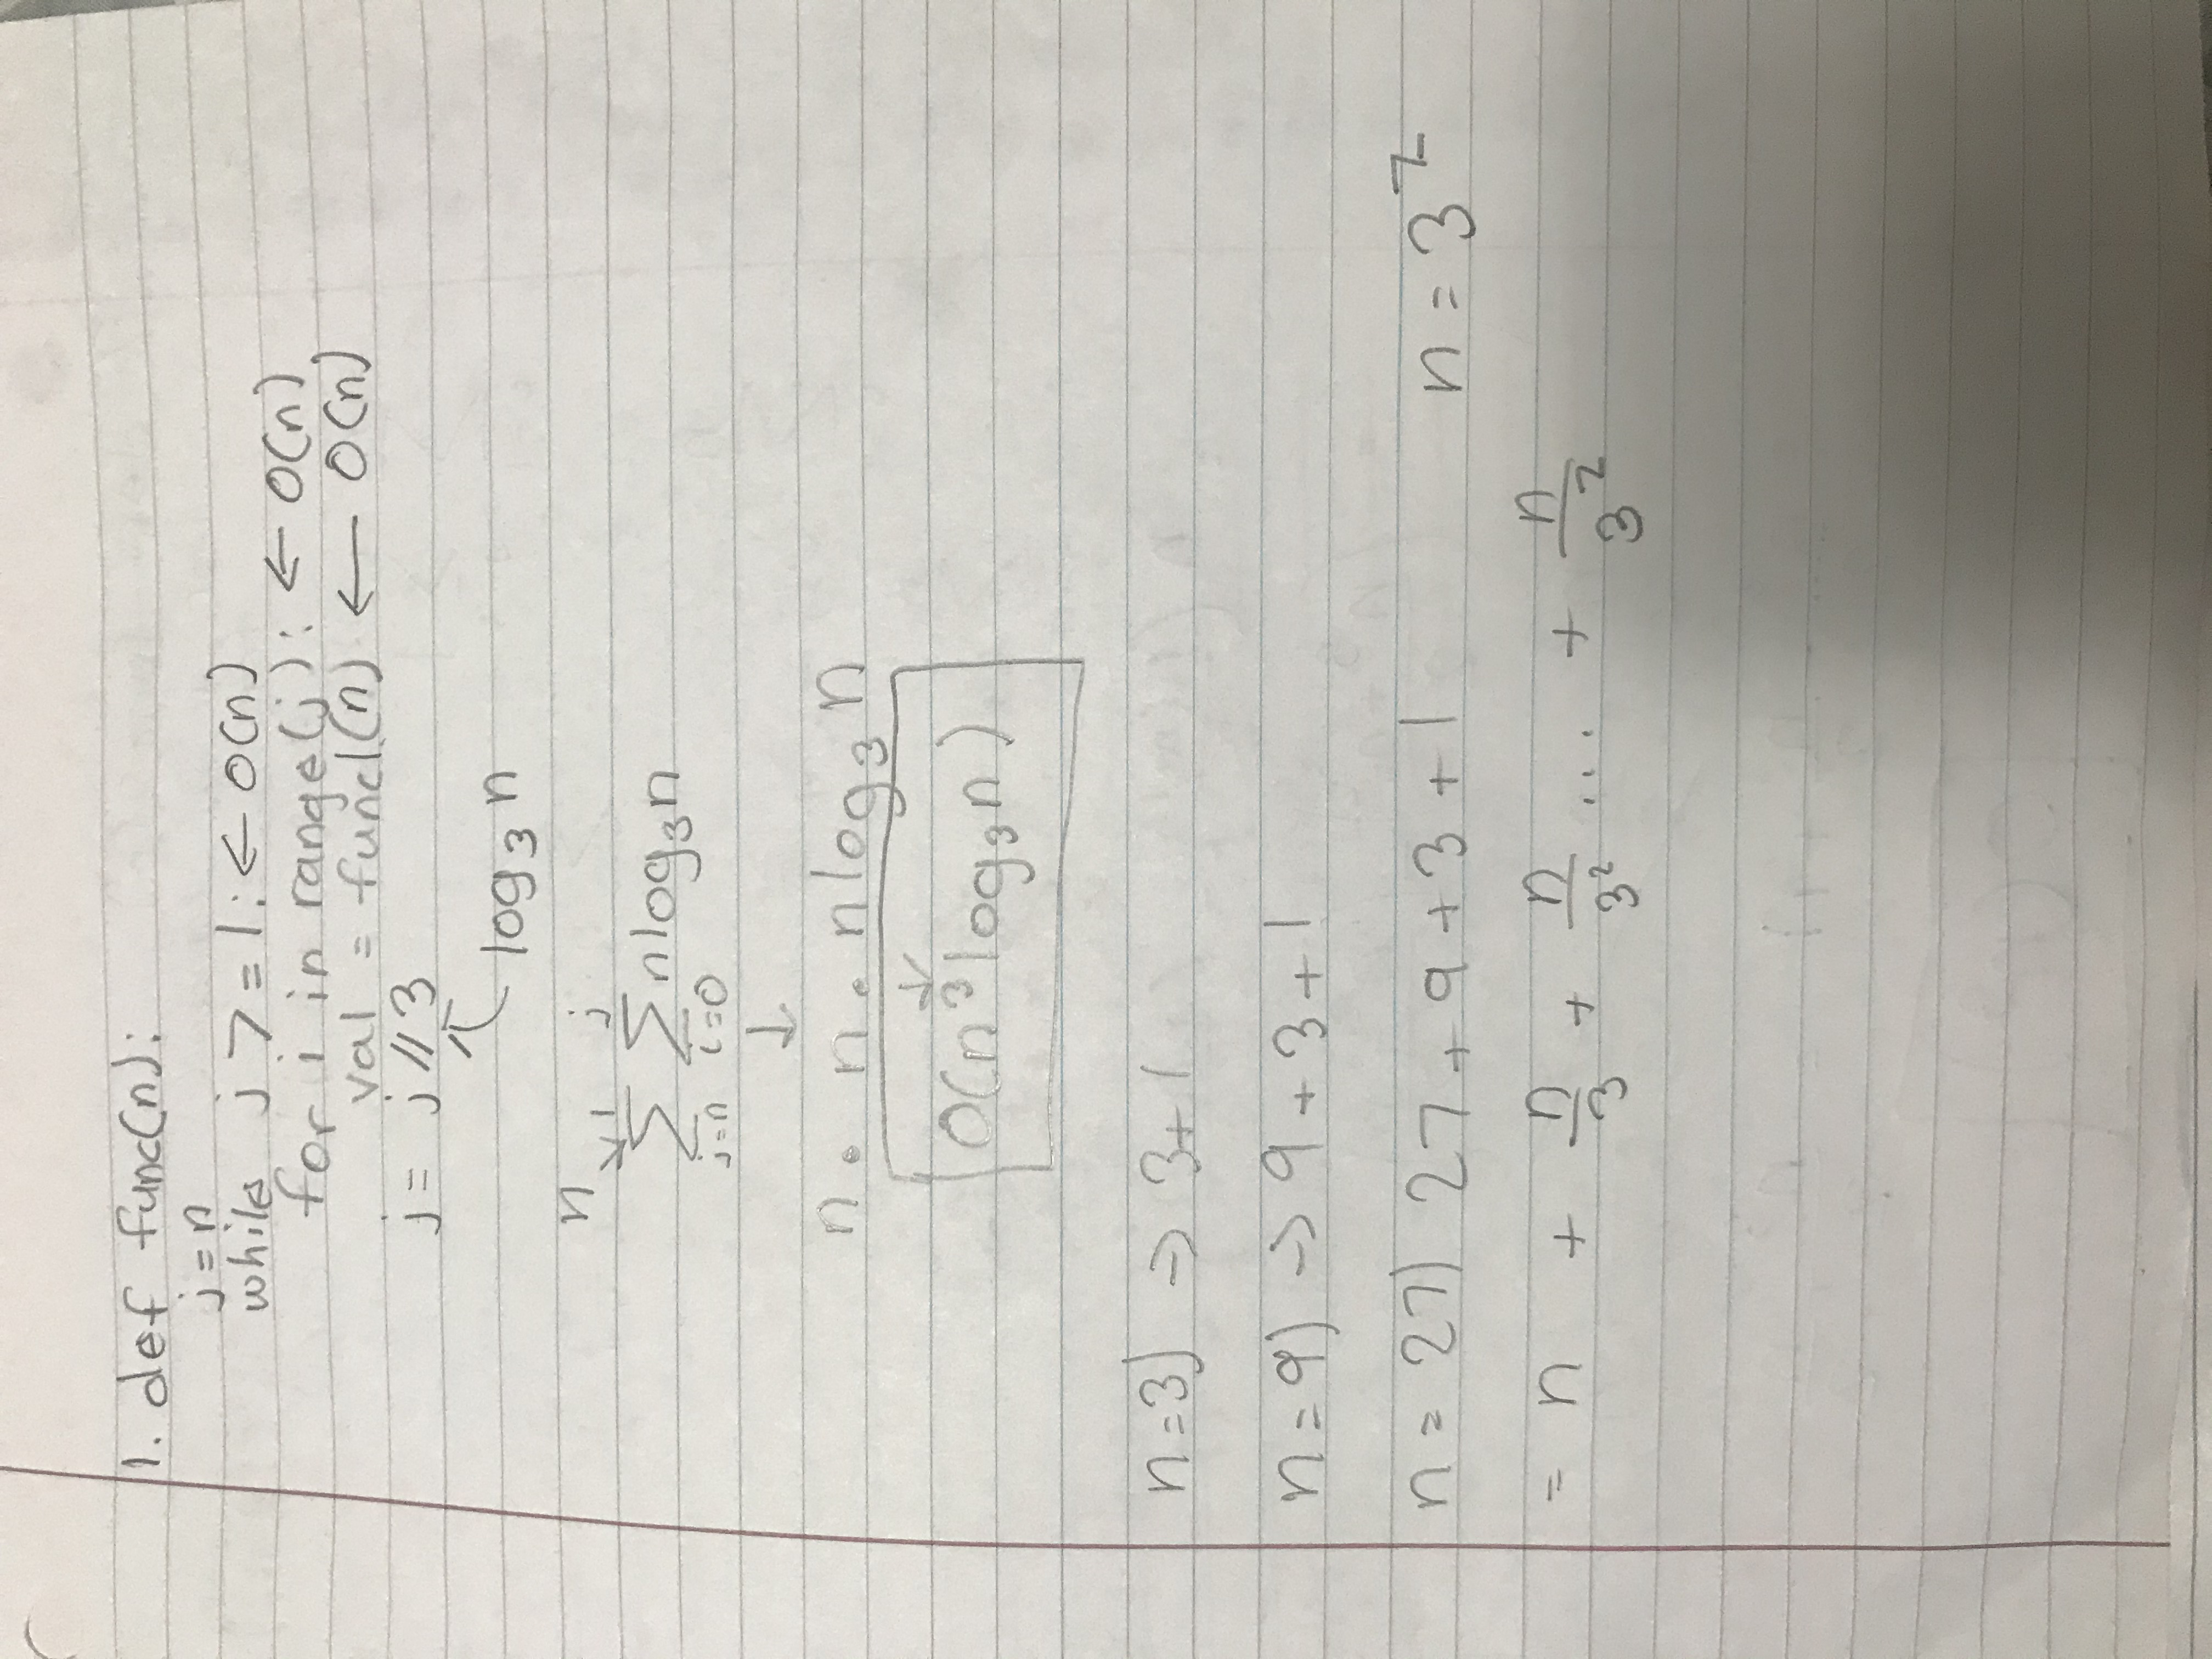 1. def func(n):
j = n
while j >= 1: ← O(n)
for i in range(j): ← O(n)
val = func1(n) ← O(n)
j = j // 3
log₃ n
n
1 j
Σ Σ n log₃ n
j=n i=0
↓
n • n • n log₃ n
↓
O(n³ log₃ n)
n = 3) → 3 + 1
n = 9) → 9 + 3 + 1
n = 27) 27 + 9 + 3 + 1 n = 3^z
= n + n/3 + n/3² ... + n/3^z